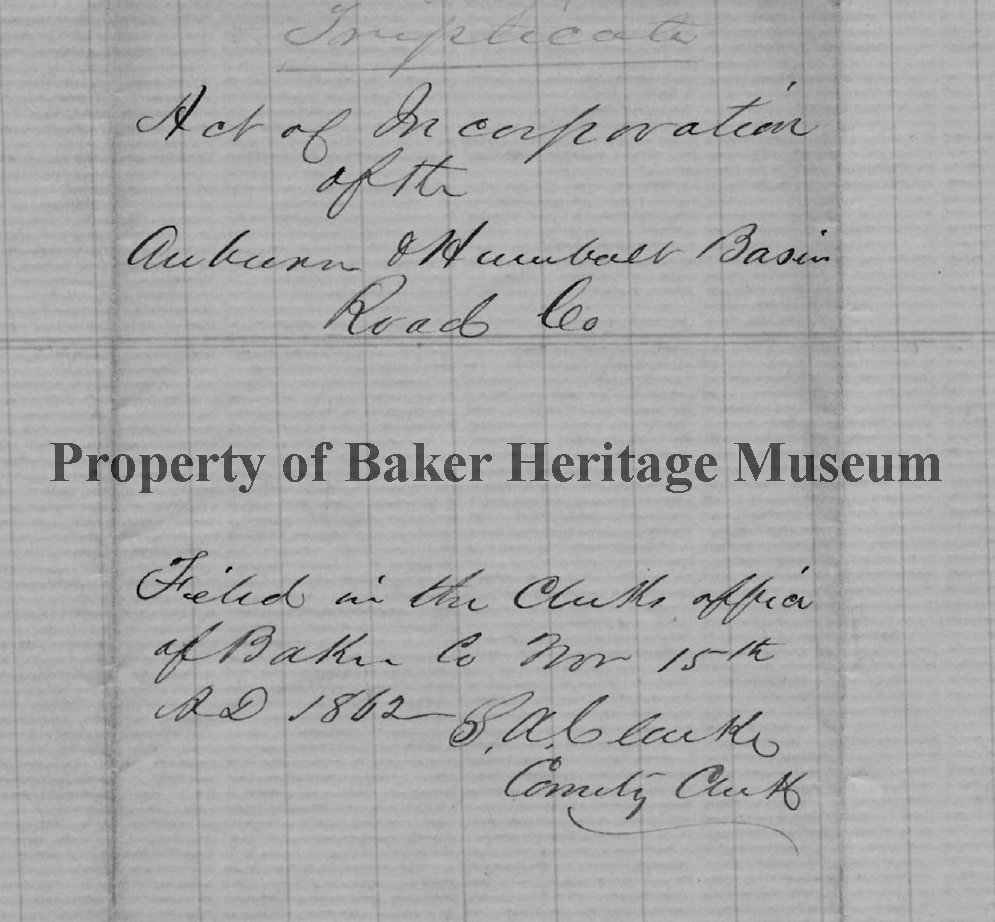 Triplicate
Act of Incorporation
of the
Auburn & Humbolt Basin
Road Co
Property of Baker Heritage Museum
Filed in the Clerks office
of Baker Co Nov 15th
A D 1862
S. A. Clarke
County Clerk